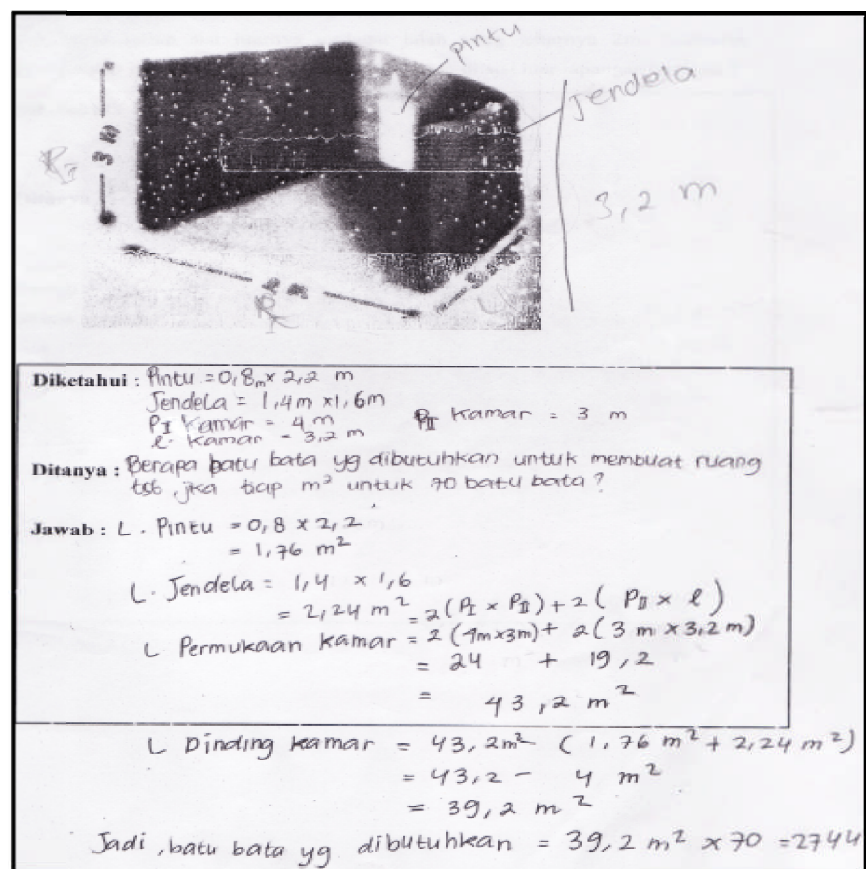 pintu
Jendela
3 m
3,2 m
Diketahui : Pintu = 0,8 m x 2,2 m
Jendela = 1,4 m x 1,6 m
P I kamar = 4 m P II kamar = 3 m
l. kamar = 3,2 m
Ditanya : Berapa batu bata yg dibutuhkan untuk membuat ruang
tsb, jika tiap m² untuk 70 batu bata?
Jawab : L. Pintu = 0,8 x 2,2
= 1,76 m²
L. Jendela = 1,4 x 1,6
= 2,24 m² = 2(P I x P II) + 2(P II x l)
L Permukaan kamar = 2(4m x 3m) + 2(3 m x 3,2 m)
= 24 + 19,2
= 43,2 m²
L Dinding kamar = 43,2m² (1,76 m² + 2,24 m²)
= 43,2 - 4 m²
= 39,2 m²
Jadi, batu bata yg dibutuhkan = 39,2 m² x 70 = 2744